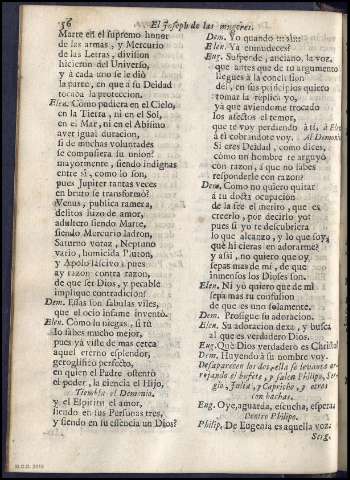 36 El Joseph de las mugeres.
Marte en el supremo honor
de las armas, y Mercurio
de las Letras, division
hicieron del Universo,
y à cada uno se le diò
la parte, en que a su Deidad
tocaba la proteccion.
Elen. Còmo pudiera en el Cielo,
en la Tierra, ni en el Sol,
en el Mar, ni en el Abismo
aver igual duracion,
si de muchas voluntades
se compusiera su union?
mayormente, siendo indignas
entre sì, como lo son,
pues Jupiter tantas veces
en bruto se transformò?
Venus, publica ramera,
delitos suzo de amor,
adultero siendo Marte,
siendo Mercurio ladron,
Saturno voraz, Neptuno
vario, homicida Pluton,
y Apolo lascivo? pues
ay razon contra razon,
de que ser Dios, y pecable
implique contradicion?
Dem. Essas son fabulas viles,
que el ocio infame inventò.
Elen. Còmo lo niegas, si tù
lo sabes mucho mejor,
pues yà viste de mas cerca
aquel eterno esplendor,
geroglifico perfecto,
en quien el Padre ostentò
el poder, la ciencia el Hijo,
Tiembla el Demonio.
y el Espiritu el amor,
siendo en sus Personas tres,
y siendo en su essencia un Dios?
Dem. Yo quando
Elen. Yà enmudeces?
Eug. Suspende, anciano, la voz,
que antes que de tu argumento
llegues à la conclusion
dèl, en sus principios quiero
tomar la replica yo,
ya que aviendome trocado
los afectos el temor,
que te voy perdiendo à ti,
à èl cobrandote voy. Al Demonio
Si eres Deidad, como dices,
còmo un hombre te arguyò
con razon, à que no sabes
responderle con razon?
Dem. Como no quiero quitar
à tu docta ocupacion
de la fee el merito, que es
creerlo, por decirlo yo:
pues si yo te descubriera
lo que alcanzo, y lo que soy,
què hicieras en adorarme?
y assi, no quiero que oy
sepas mas de mi, de que
inmensos los Dioses son.
Elen. Ni yo quiero que de mi
sepa mas tu confusion
de que es uno solamente.
Dem. Prosigue su adoracion.
Elen. Su adoracion dexa, y busca
al que es verdadero Dios.
Eug. Què Dios verdadero es Christo?
Dem. Huyendo à su nombre voy.
Desaparecen los dos, ella se levanta arrojando
el bufete, y salen Philipo, Sergio,
Julia, y Capricho, y otros
con hachas.
Eug. Oye, aguarda, escucha, espera.
Dentro Philipo.
Philip. De Eugenia es aquella voz:
Serg.